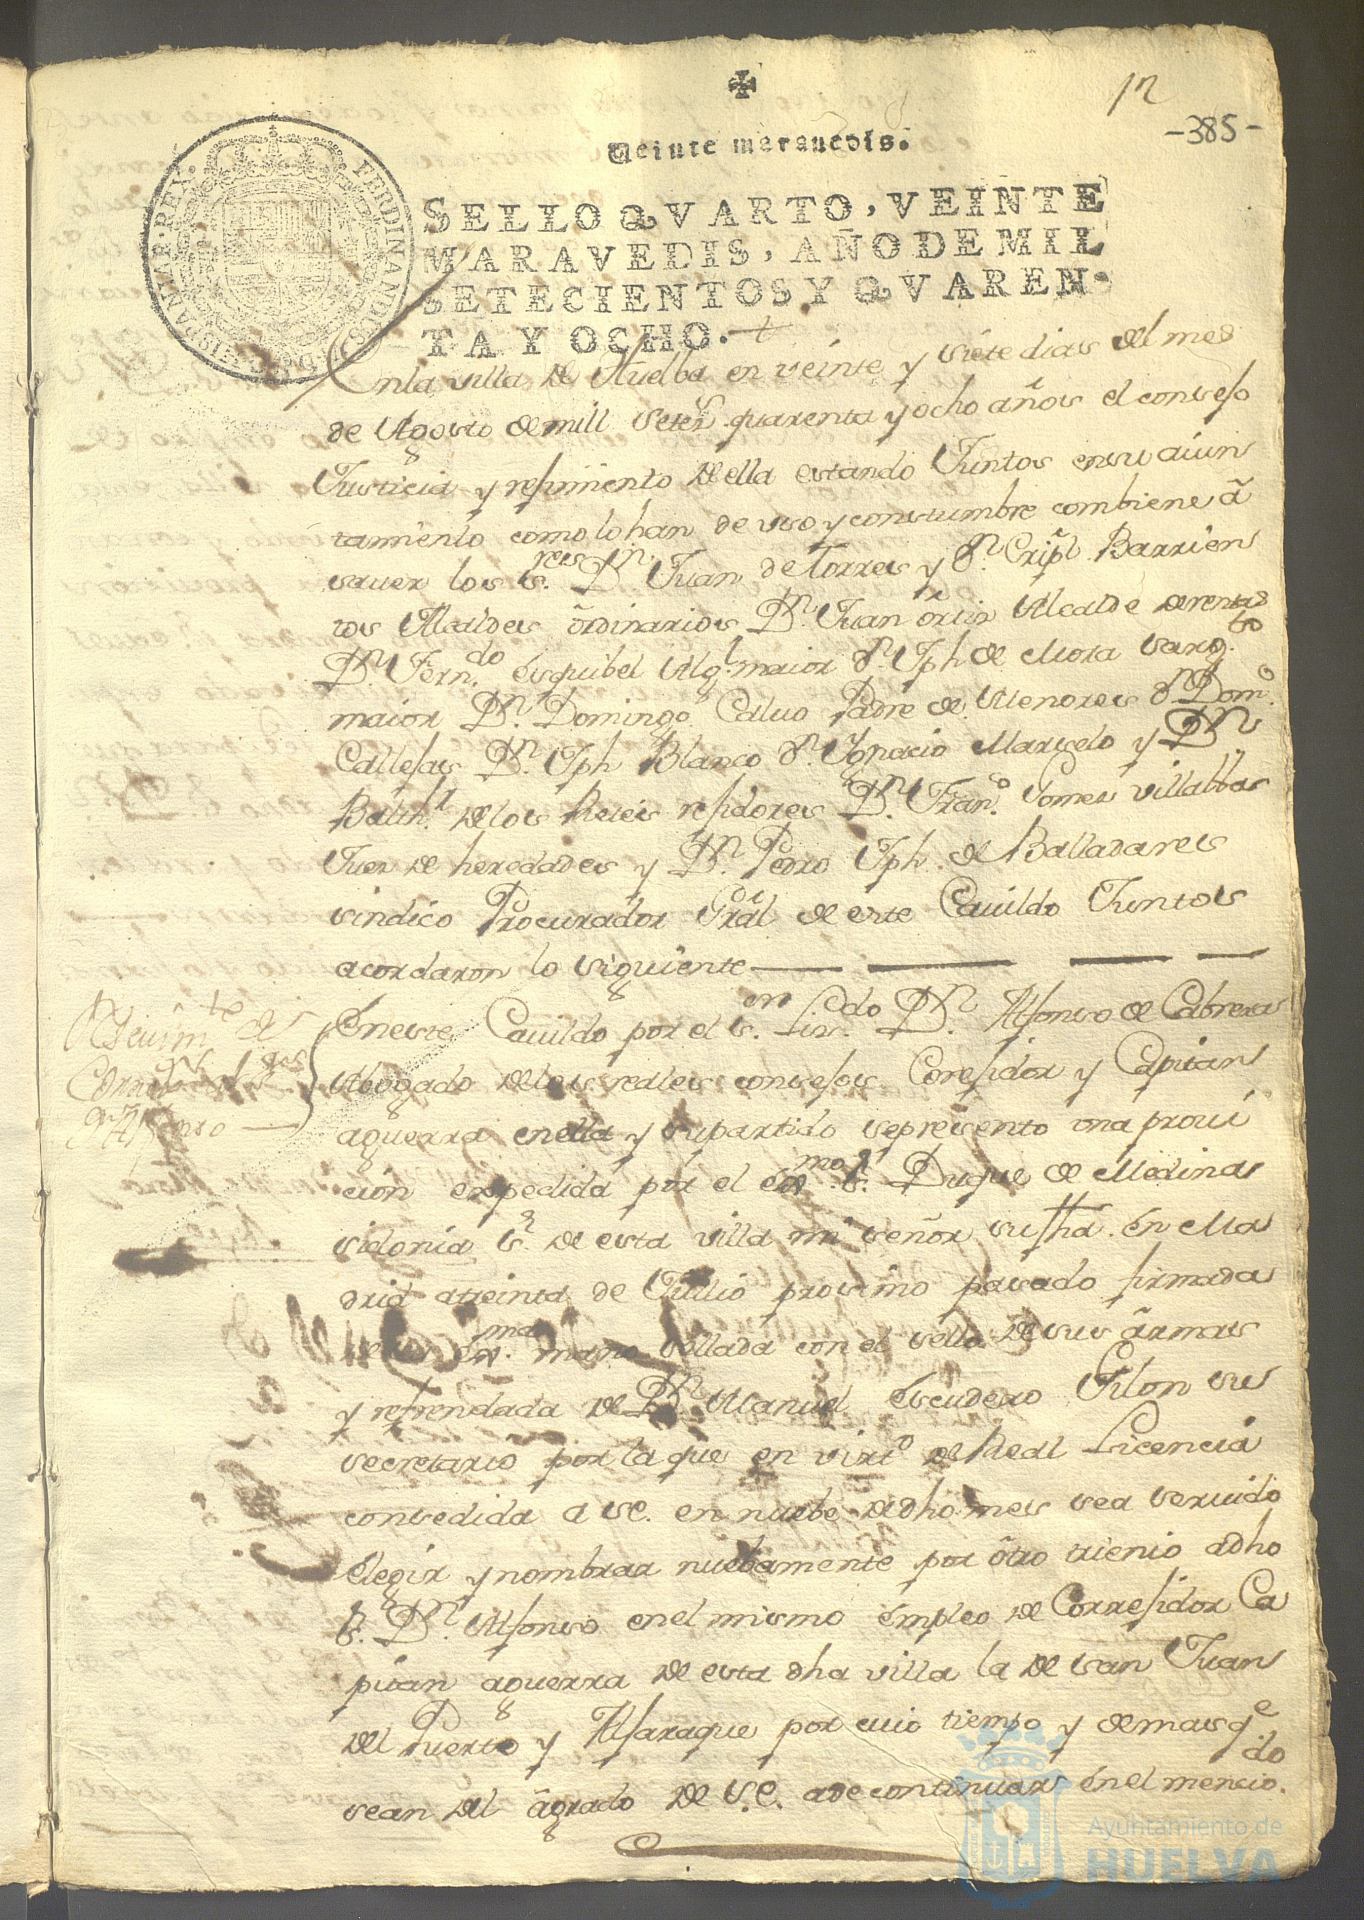 12
-385-
Veinte maravedis.
FERDINANDUS VI D. G. HISPANIAR. REX
SELLO QVARTO, VEINTE
MARAVEDIS, AÑO DE MIL
SETECIENTOS Y QVAREN-
TA Y OCHO.
En la villa de Huelba en veinte y siete dias del mes
de Agosto de mill setezs. quarenta y ocho años el consejo
Justicia y rejimiento de ella estando Juntos en su aiun
tamiento como lo han de uso y constumbre combiene â
sauer los Sres. Dn. Juan de Torres y Dn. Cripl. Barrien
tos Alcaldes õrdinarios Dn. Juan ortiz Alcalde de rentas
Dn. Ferndo. esquibel Algl. maior Dn. Jph de Mora sargto.
maior Dn. Domingo Caluo Padre de Menores Dn. Domo.
Callejas Dn. Jph Blanco Dn. Ygnacio Marselo y Dn.
Balthl. de los Reies rejidores Dn. Frano. Gomez villalbas
Juez de heredades y Dn. Pedro Jph. de Balladares
sindico Procurador Gral de este Cauildo Juntos
acordaron lo siguiente
Reseuimto. de
Correxor.
Dn. Alfonso
En este Cauildo por el Sor. Lizdo. Dn. Alfonso de Cabrera
Abogado de los reales consejos Corejidor y Capitan
aguerra en ella y su partido se presento una proui
cion expedida por el exmo. Sr. Duque de Medina
sidonia Sr. de esta villa mi señor su fha. en Ma
drid a treinta de Julio procsimo pasado firmada
de su exma. mano sellada con el sello de sus ãrmas
y refrendada de Dn. Manuel Escudero Jilon su
secretario por la que en virto. de Real Licencia
consedida a S.E. en nuebe de dho mes se a seruido
elegir y nombrar nuebamente por õtro trienio a dho
Sr. Dn. Alfonso en el mismo empleo de Correjidor Ca
pitan aguerra de esta dha villa la de san Juan
del Puerto y Aljaraque por cuio tiempo y demas qe.
sean del ãgrado de S.E. a de continuar en el mencio.do
Ayuntamiento de
HUELVA